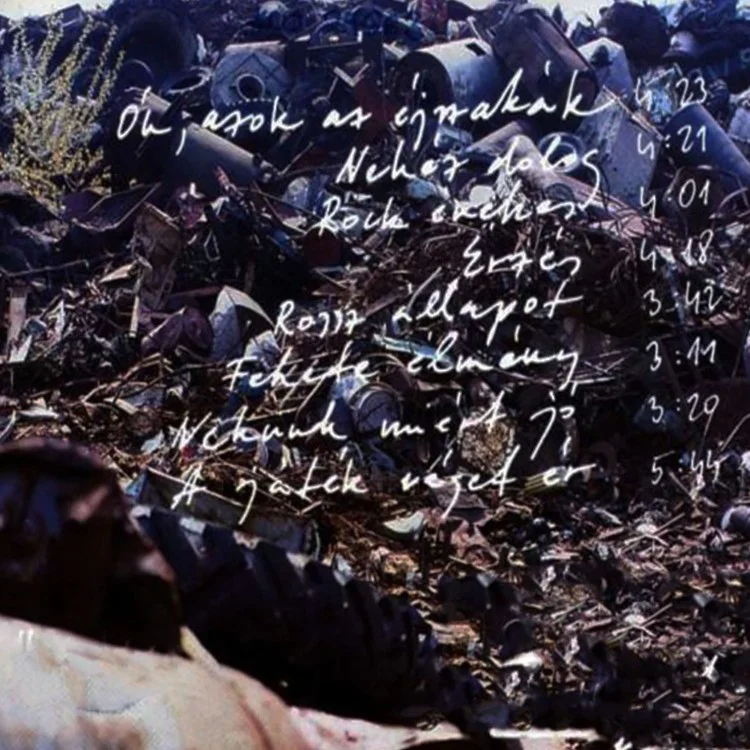 Óh, azok az éjszakák 4:23
Nehéz dolog 4:21
Rock 4:01
Érzés 4:18
Rossz állapot 3:42
Fekete élmény 3:11
Nekünk miért jó 3:20
A játék véget ér 5:44